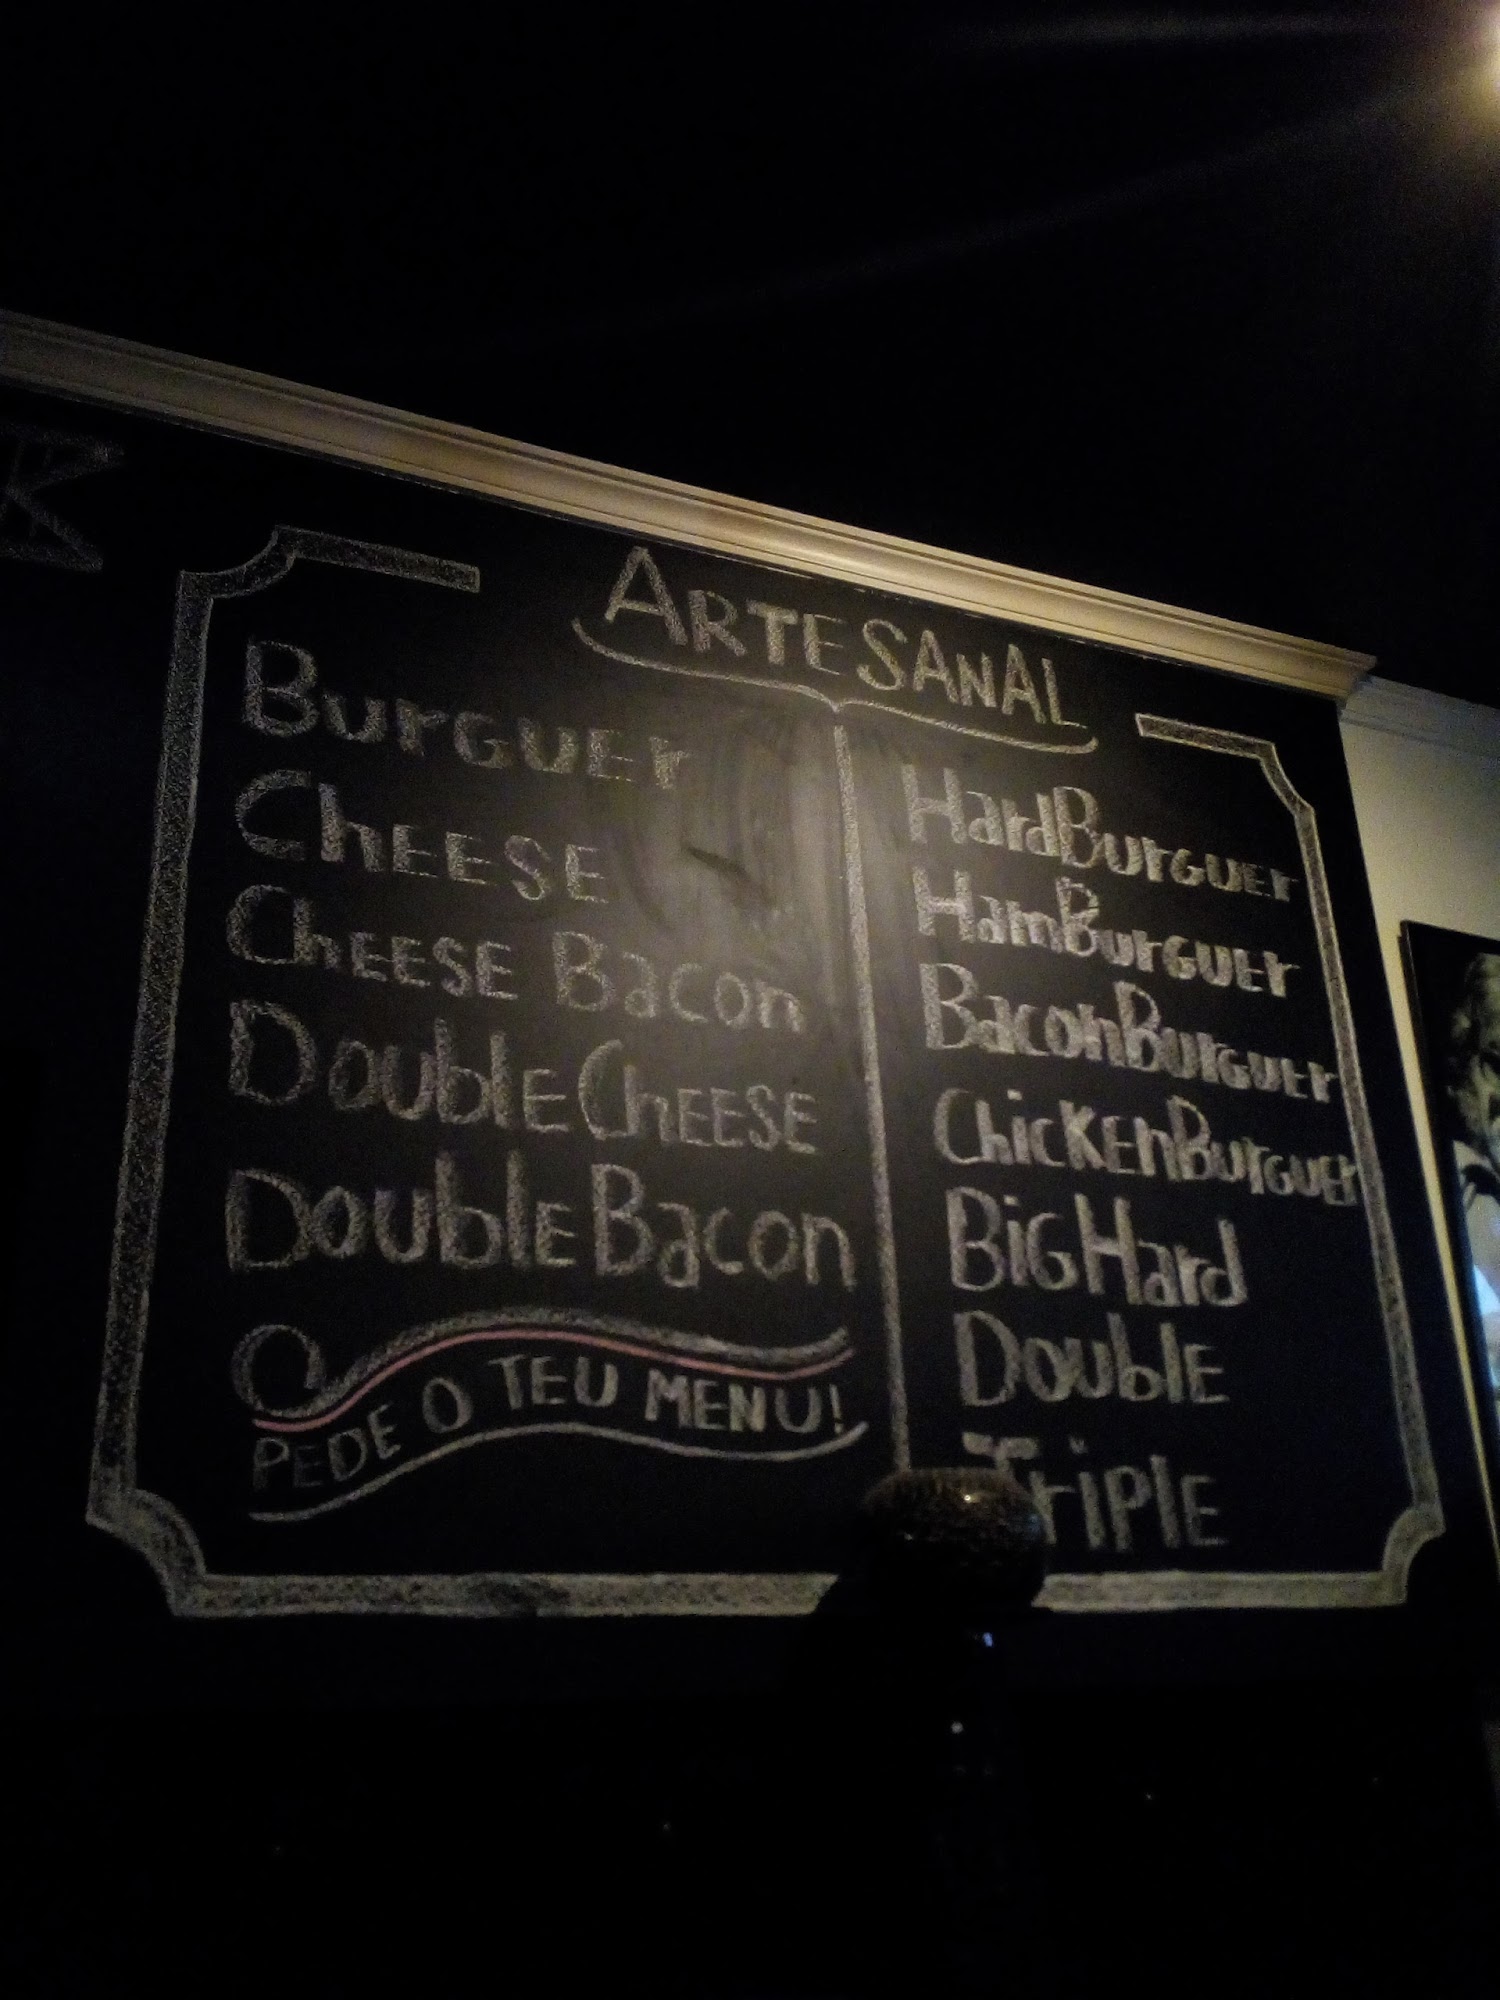 ARTESANAL
BurGUEr
ChEESE
ChEESE Bacon
DoublECheESE
DoublEBacon
PEDE O TEU MENU!
HardBurGUEr
HamBurGUEr
BaconBurGUEr
ChicKEnBurGUEr
BiGHard
DoublE
TriPlE